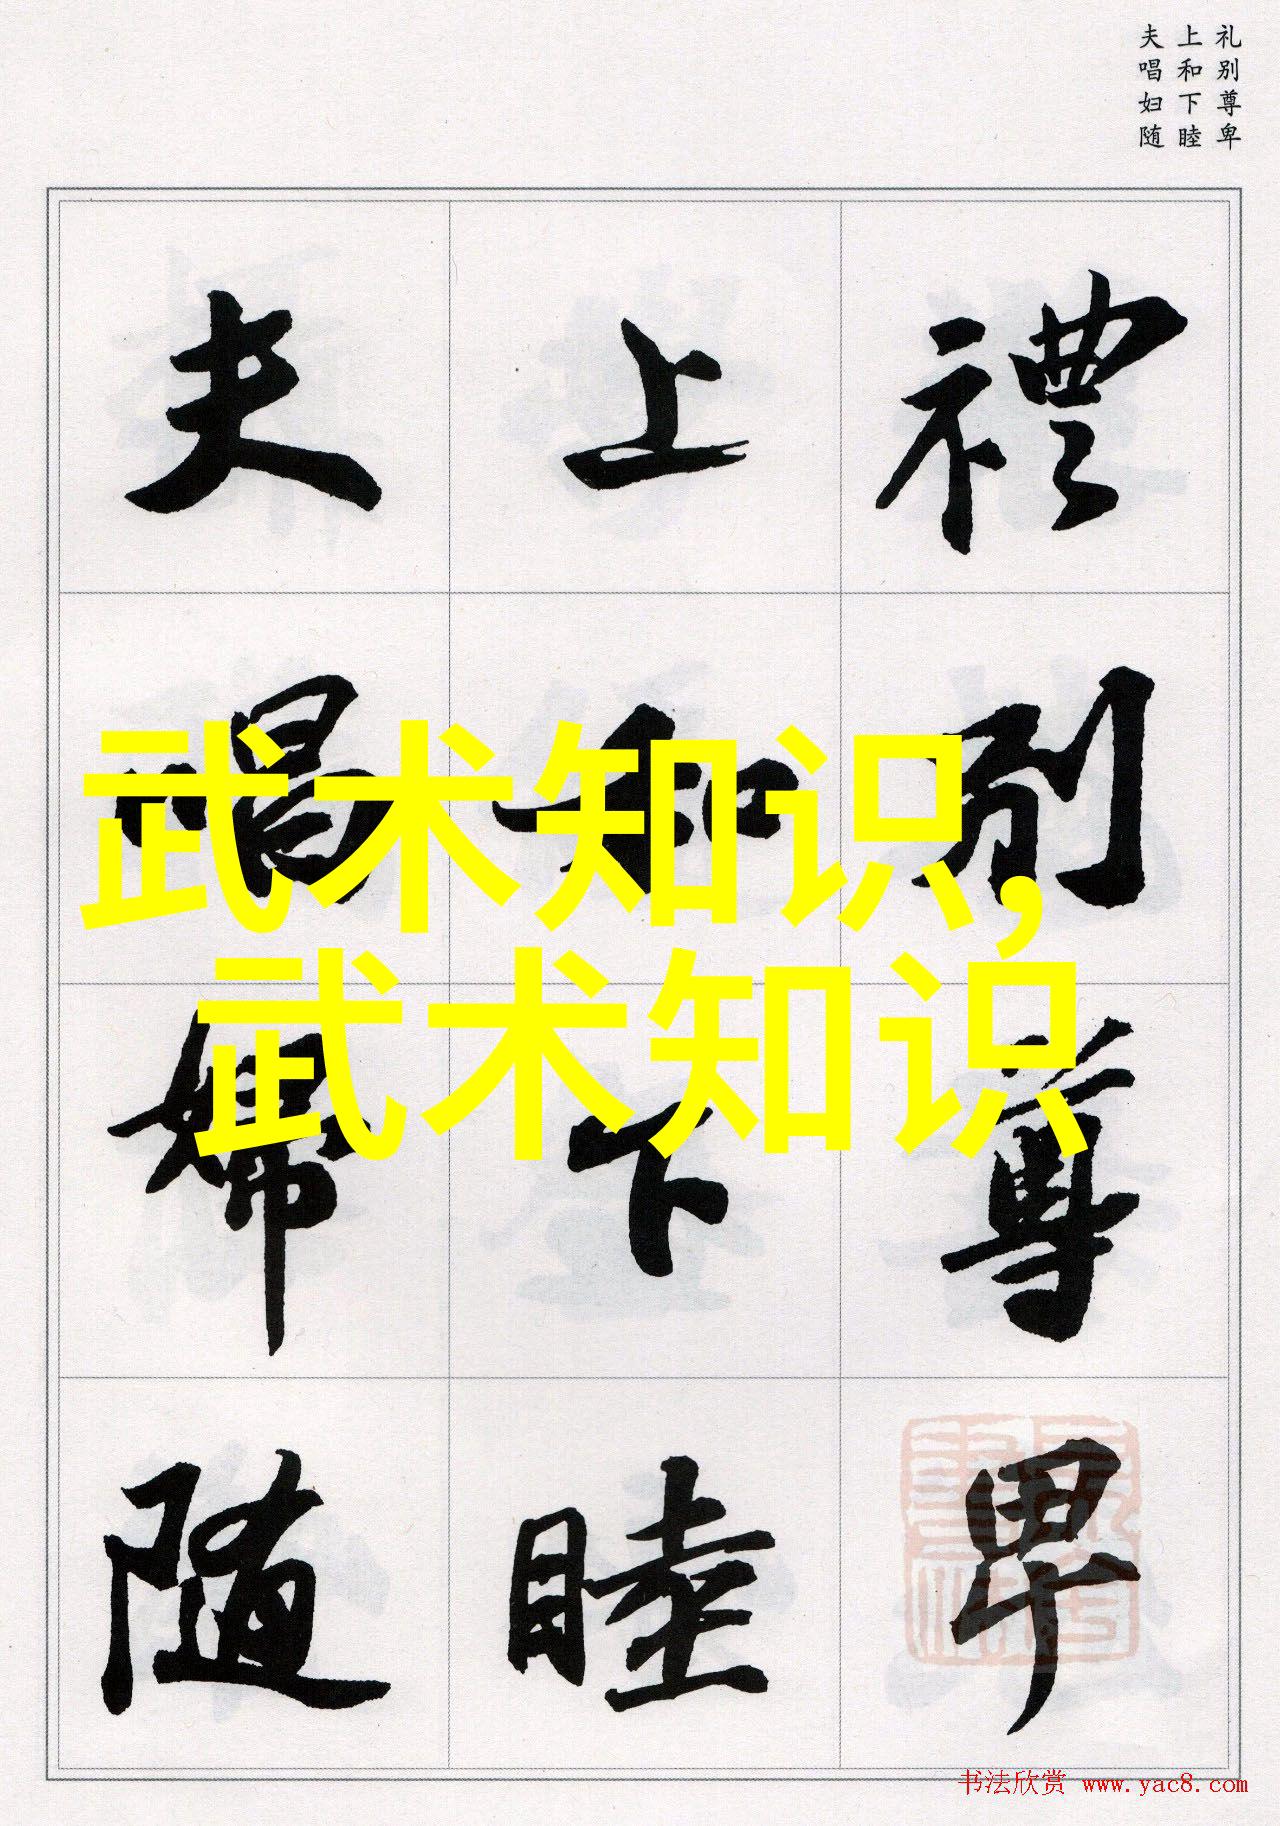 礼别尊卑
上和下睦
夫唱妇随
禮别尊卑
上和下睦
夫唱婦随
武术知识,
武术知识
书法欣赏 www.yac8.com